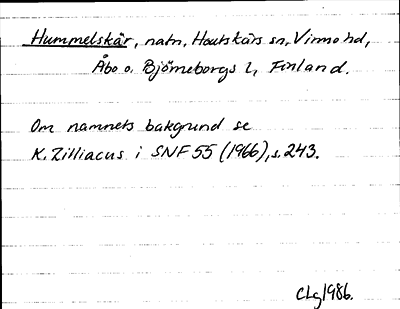 Hummelskär, natn, Houtskärs sn, Virmo hd,
Åbo o. Björneborgs l, Finland.
Om namnets bakgrund se
K. Zilliacus i SNF 55 (1966), s. 243.
CLg 1986.